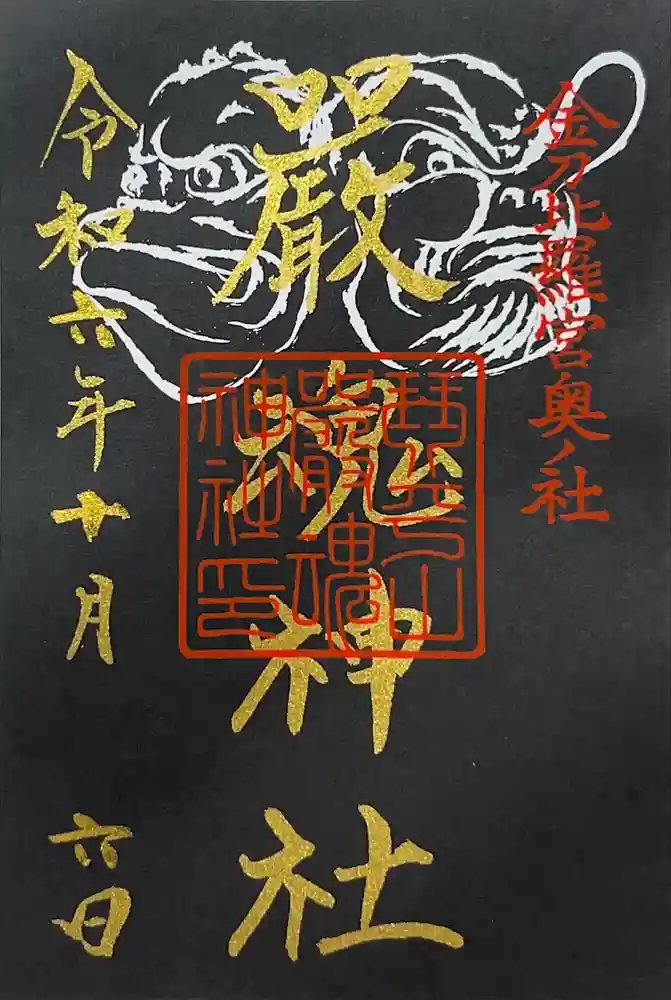 金刀比羅宮奥ノ社
嚴魂神社
琴平山
嚴魂
神社印
令和六年十月六日